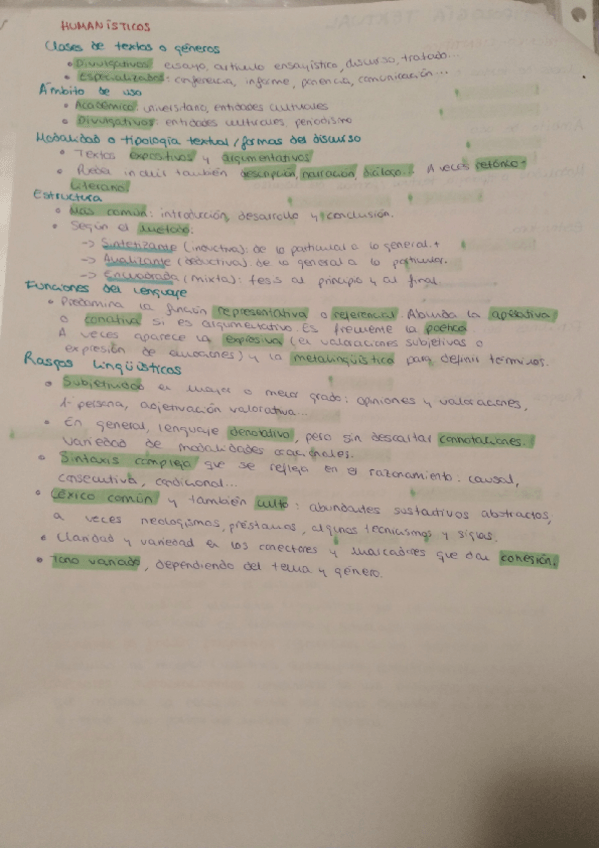 HUMANÍSTICOS
Clases de textos o géneros
• Divulgativos: ensayo, artículo ensayístico, discurso, tratado...
• Especializados: conferencia, informe, ponencia, comunicación...
Ámbito de uso
• Académico: universitario, entidades culturales
• Divulgativos: entidades culturales, periodismo
Modalidad o tipología textual / formas del discurso
• Textos expositivos y argumentativos
• Puede incluir también descripción, narración, diálogo... A veces retórico-
literario.
Estructura
• Más común: introducción, desarrollo y conclusión.
• Según el método:
-> Sintetizante (inductiva): de lo particular a lo general.
-> Analizante (deductiva) de lo general a lo particular.
-> Encuadrada (mixta): tesis al principio y al final.
Funciones del lenguaje
• Predomina la función representativa o referencial. Abunda la apelativa
o conativa si es argumentativo. Es frecuente la poética
A veces aparece la expresiva (en valoraciones subjetivas o
expresión de emociones) y la metalingüística para definir términos.
Rasgos lingüísticos
• Subjetividad en mayor o menor grado: opiniones y valoraciones,
1ª persona, adjetivación valorativa...
• En general, lenguaje denotativo, pero sin descartar connotaciones.
Variedad de modalidades oracionales.
• Sintaxis compleja que se refleja en el razonamiento: causal,
consecutiva, condicional...
• Léxico común y también culto: abundantes sustantivos abstractos,
a veces neologismos, préstamos, algunos tecnicismos y siglas.
• Claridad y variedad en los conectores y marcadores que dan cohesión.
• Tono variado, dependiendo del tema y género.